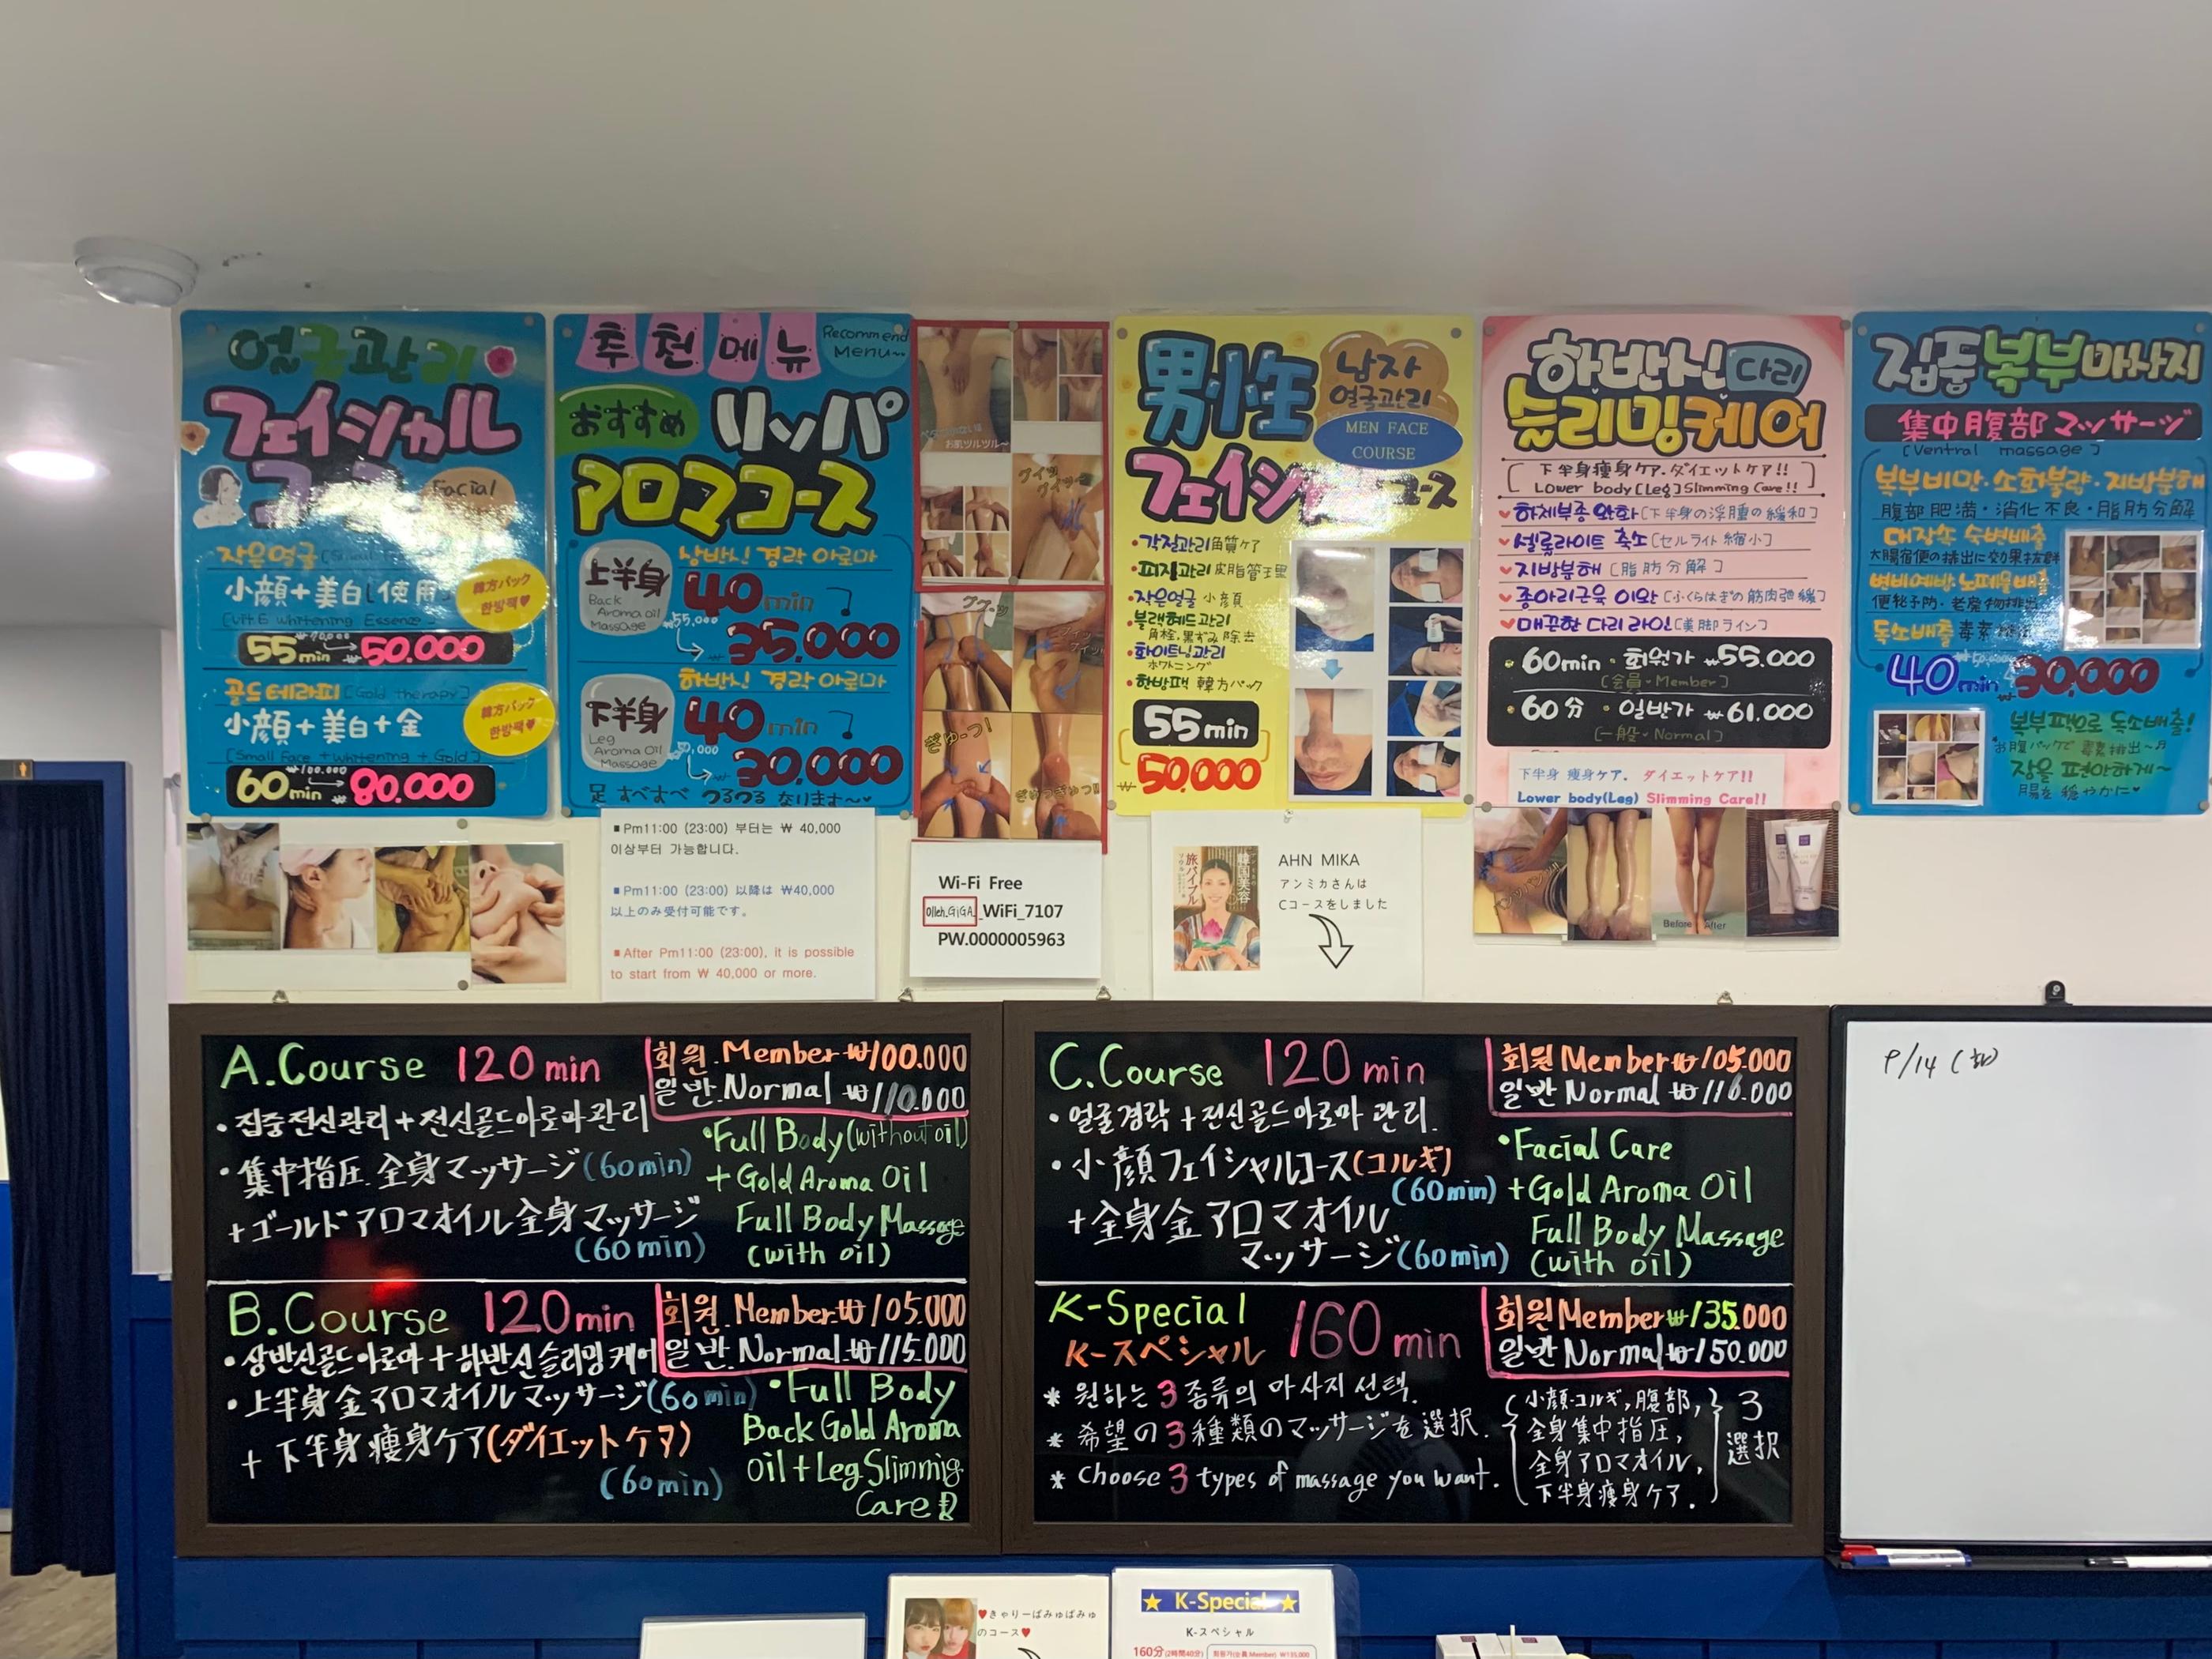 얼굴관리
フェイシャル
コース
Facial
작은얼굴
小顔+美白
使用
韓方パック
한방팩♥
55min ₩50.000
골드테라피[Gold therapy]
小顔+美白+金
韓方パック
한방팩♥
[Small Face + Whitening + Gold]
₩100.000
60min ₩80.000
추천메뉴
Recommend
Menu~
おすすめ リンパ
アロマコース
上半身
Back
Aroma oil
Massage
상반신 경락 아로마
40min
₩55.000
35.000
下半身
Leg
Aroma Oil
Massage
하반신 경락 아로마
40min
30.000
足 すべすべ つるつる なります~♥
お肌ツルツル~
グイッ
グイッ
ぎゅーっ!
男性
남자
얼굴관리
MEN FACE
COURSE
フェイシャルコース
•각질관리 角質ケア
•피지관리 皮脂管理
•작은얼굴 小顔
•블랙헤드관리
角栓、黒ずみ除去
•화이트닝관리
ホワイトニング
•한방팩 韓方パック
55min
₩50.000
하반신 다리
슬리밍케어
[下半身痩身ケア.ダイエットケア!!
Lower body[Leg]Slimming Care!!]
♥하체부종 완화[下半身の浮腫の緩和]
♥셀룰라이트 축소[セルライト縮小]
♥지방분해[脂肪分解]
♥종아리근육 이완[ふくらはぎの筋肉弛緩]
♥매끈한 다리 라인[美脚ライン]
60min・회원가 ₩55.000
[会員・Member]
60分・일반가 ₩61.000
[一般・Normal]
下半身 痩身ケア. ダイエットケア!!
Lower body(Leg) Slimming Care!!
Before After
집중복부마사지
集中腹部マッサージ
[Ventral massage]
복부비만・소화불량・지방분해
腹部肥満・消化不良・脂肪分解
대장속 숙변배출
大腸宿便の排出に効果抜群
변비예방・노폐물배출
便秘予防・老廃物排出
독소배출 毒素
40min ₩30.000
복부팩으로 독소배출!
お腹パックで 毒素排出~♬
장을 편안하게~
腸を穏やかに♥
■ Pm11:00 (23:00) 부터는 ₩ 40,000
이상부터 가능합니다.
■ Pm11:00 (23:00) 以降は ₩40,000
以上のみ受付可能です。
■ After Pm11:00 (23:00), it is possible
to start from ₩ 40,000 or more.
Wi-Fi Free
Olleh_GiGA_WiFi_7107
PW.0000005963
韓国美容
旅バイブル
AHN MIKA
アンミカさんは
Cコースをしました
A.Course 120min
회원.Member ₩100.000
일반.Normal ₩110.000
•집중전신관리+전신골드아로마관리
•集中指圧.全身マッサージ(60min)
+ゴールドアロマオイル全身マッサージ
(60min)
•Full Body(without oil)
+Gold Aroma Oil
Full Body Massage
(with oil)
B.Course 120min
회원.Member ₩105.000
일반.Normal ₩115.000
•상반신골드아로마+하반신슬리밍케어
•上半身金アロマオイルマッサージ(60min)
+下半身痩身ケア(ダイエットケア)
(60min)
•Full Body
Back Gold Aroma
oil+Leg Slimmig
Care
C.Course 120min
회원 Member ₩105.000
일반 Normal ₩116.000
•얼굴경락+전신골드아로마 관리.
•小顔フェイシャルコース(コルギ)
(60min)
+全身金アロマオイル
マッサージ(60min)
•Facial Care
+Gold Aroma Oil
Full Body Massage
(with oil)
K-Special
K-スペシャル 160min
회원Member ₩135.000
일반Normal ₩150.000
* 원하는 3종류의 마사지 선택.
* 希望の3種類のマッサージを選択.
* Choose 3 types of massage you want.
{小顔・コルギ,腹部,
全身集中指圧,
全身アロマオイル,
下半身痩身ケア.} 3
選択
9/14 (화)
♥きゃりーぱみゅぱみゅ
のコース♥
★ K-Special ★
K-スペシャル
160分(2時間40分)
회원가(会員Member) ₩135,000